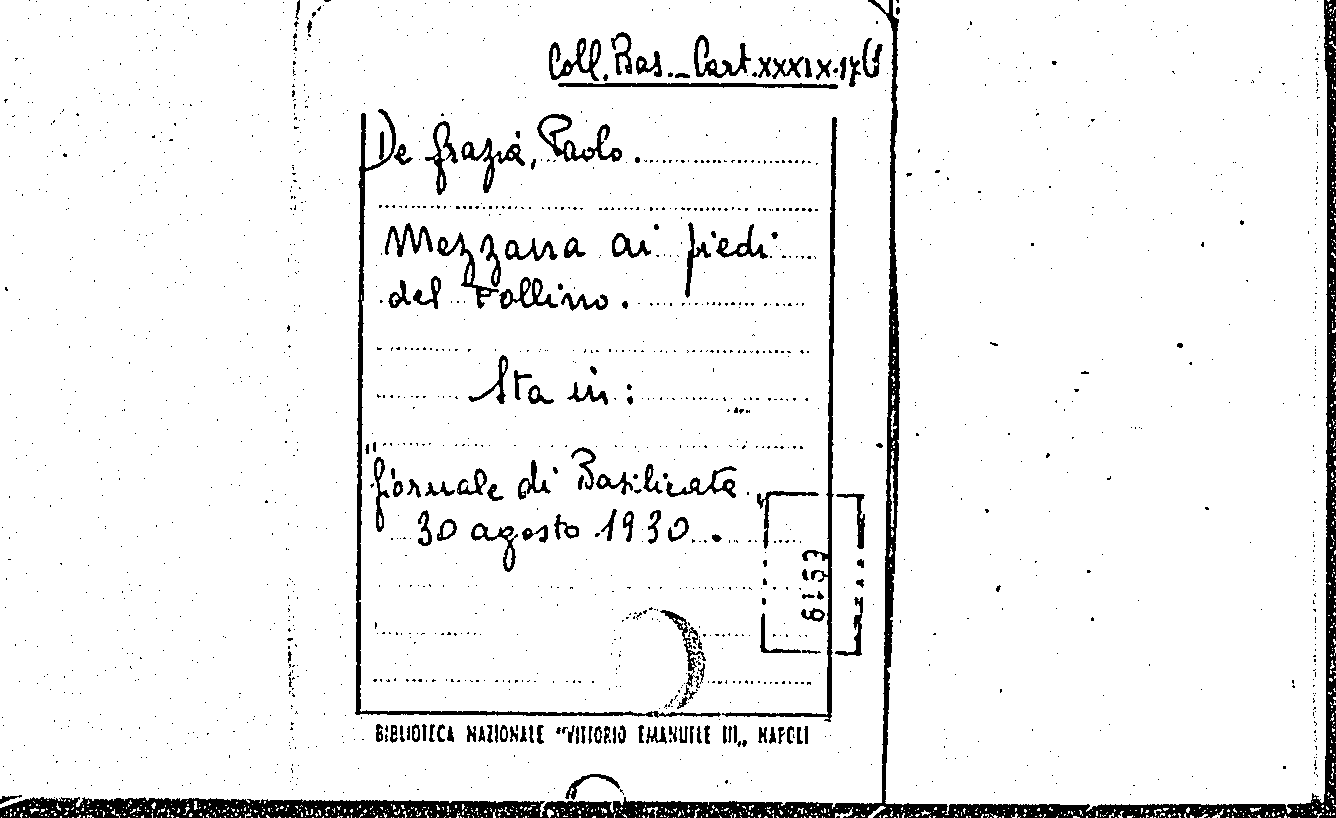 Coll. Bas. - Cart. XXXIX.17(6
De Grazia, Paolo.
Mezzana ai piedi
del Pollino.
Sta in:
"Giornale di Basilicata„
30 agosto 1930.
BIBLIOTECA NAZIONALE "VITTORIO EMANUELE III„ NAPOLI